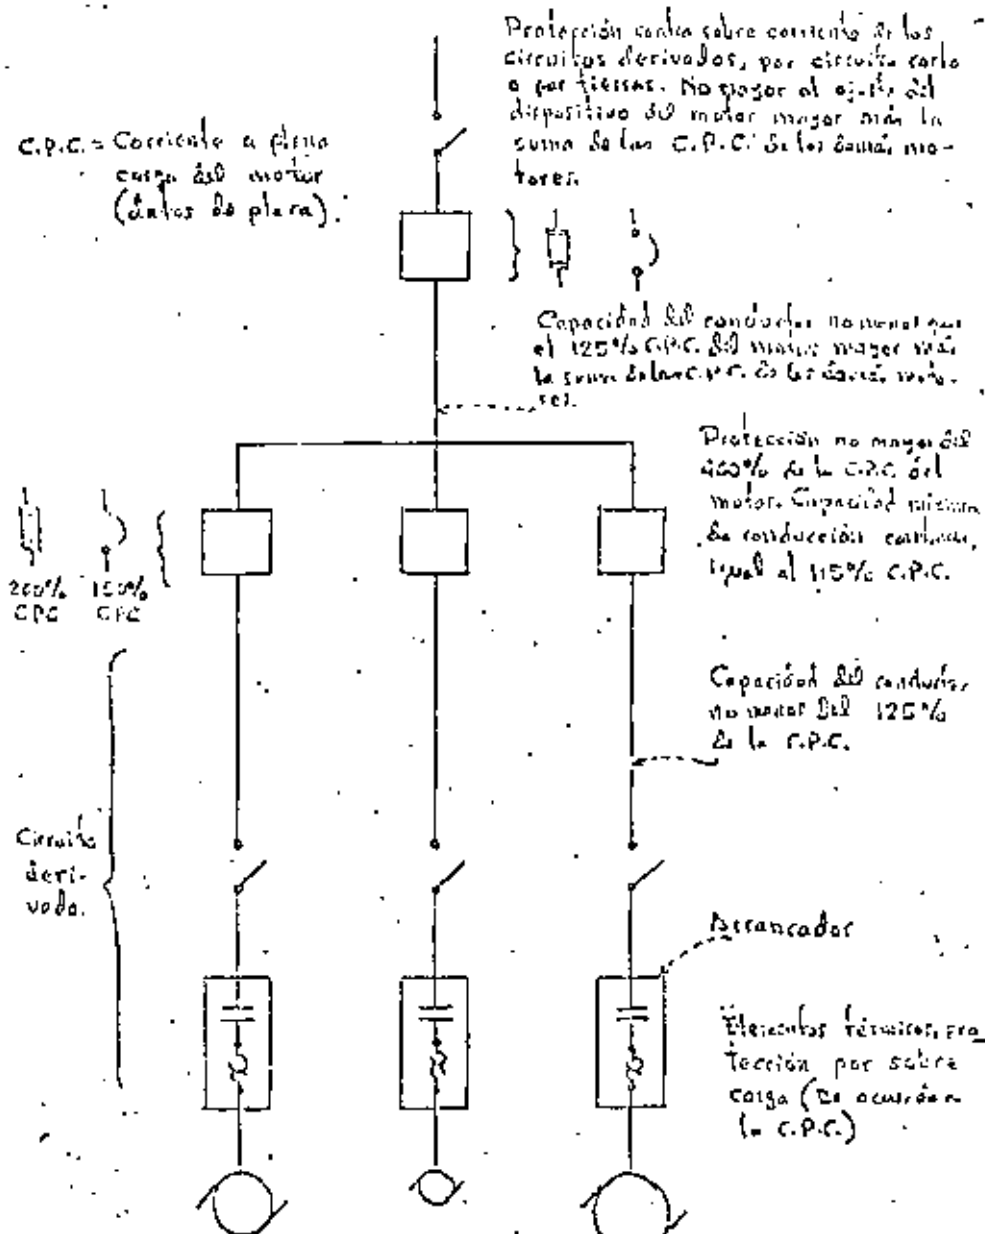 Protección contra sobre corriente de los
circuitos derivados, por circuito corto
o por tierras. No mayor al ajuste del
dispositivo del motor mayor más la
suma de las C.P.C. de los demás mo-
tores.
C.P.C. = Corriente a plena
carga del motor
(datos de placa).
Capacidad del conductor no menor que
el 125% C.P.C. del motor mayor más
la suma de las C.P.C. de los demás moto-
res.
Protección no mayor del
400% de la C.P.C. del
motor. Capacidad mínima
de conducción continua,
igual al 115% C.P.C.
200% 150%
CPC CPC
Capacidad del conductor
no menor del 125%
de la C.P.C.
Circuito
deri-
vado.
Arrancador
Elementos térmicos, pro
tección por sobre
carga (De acuerdo a
la C.P.C.)